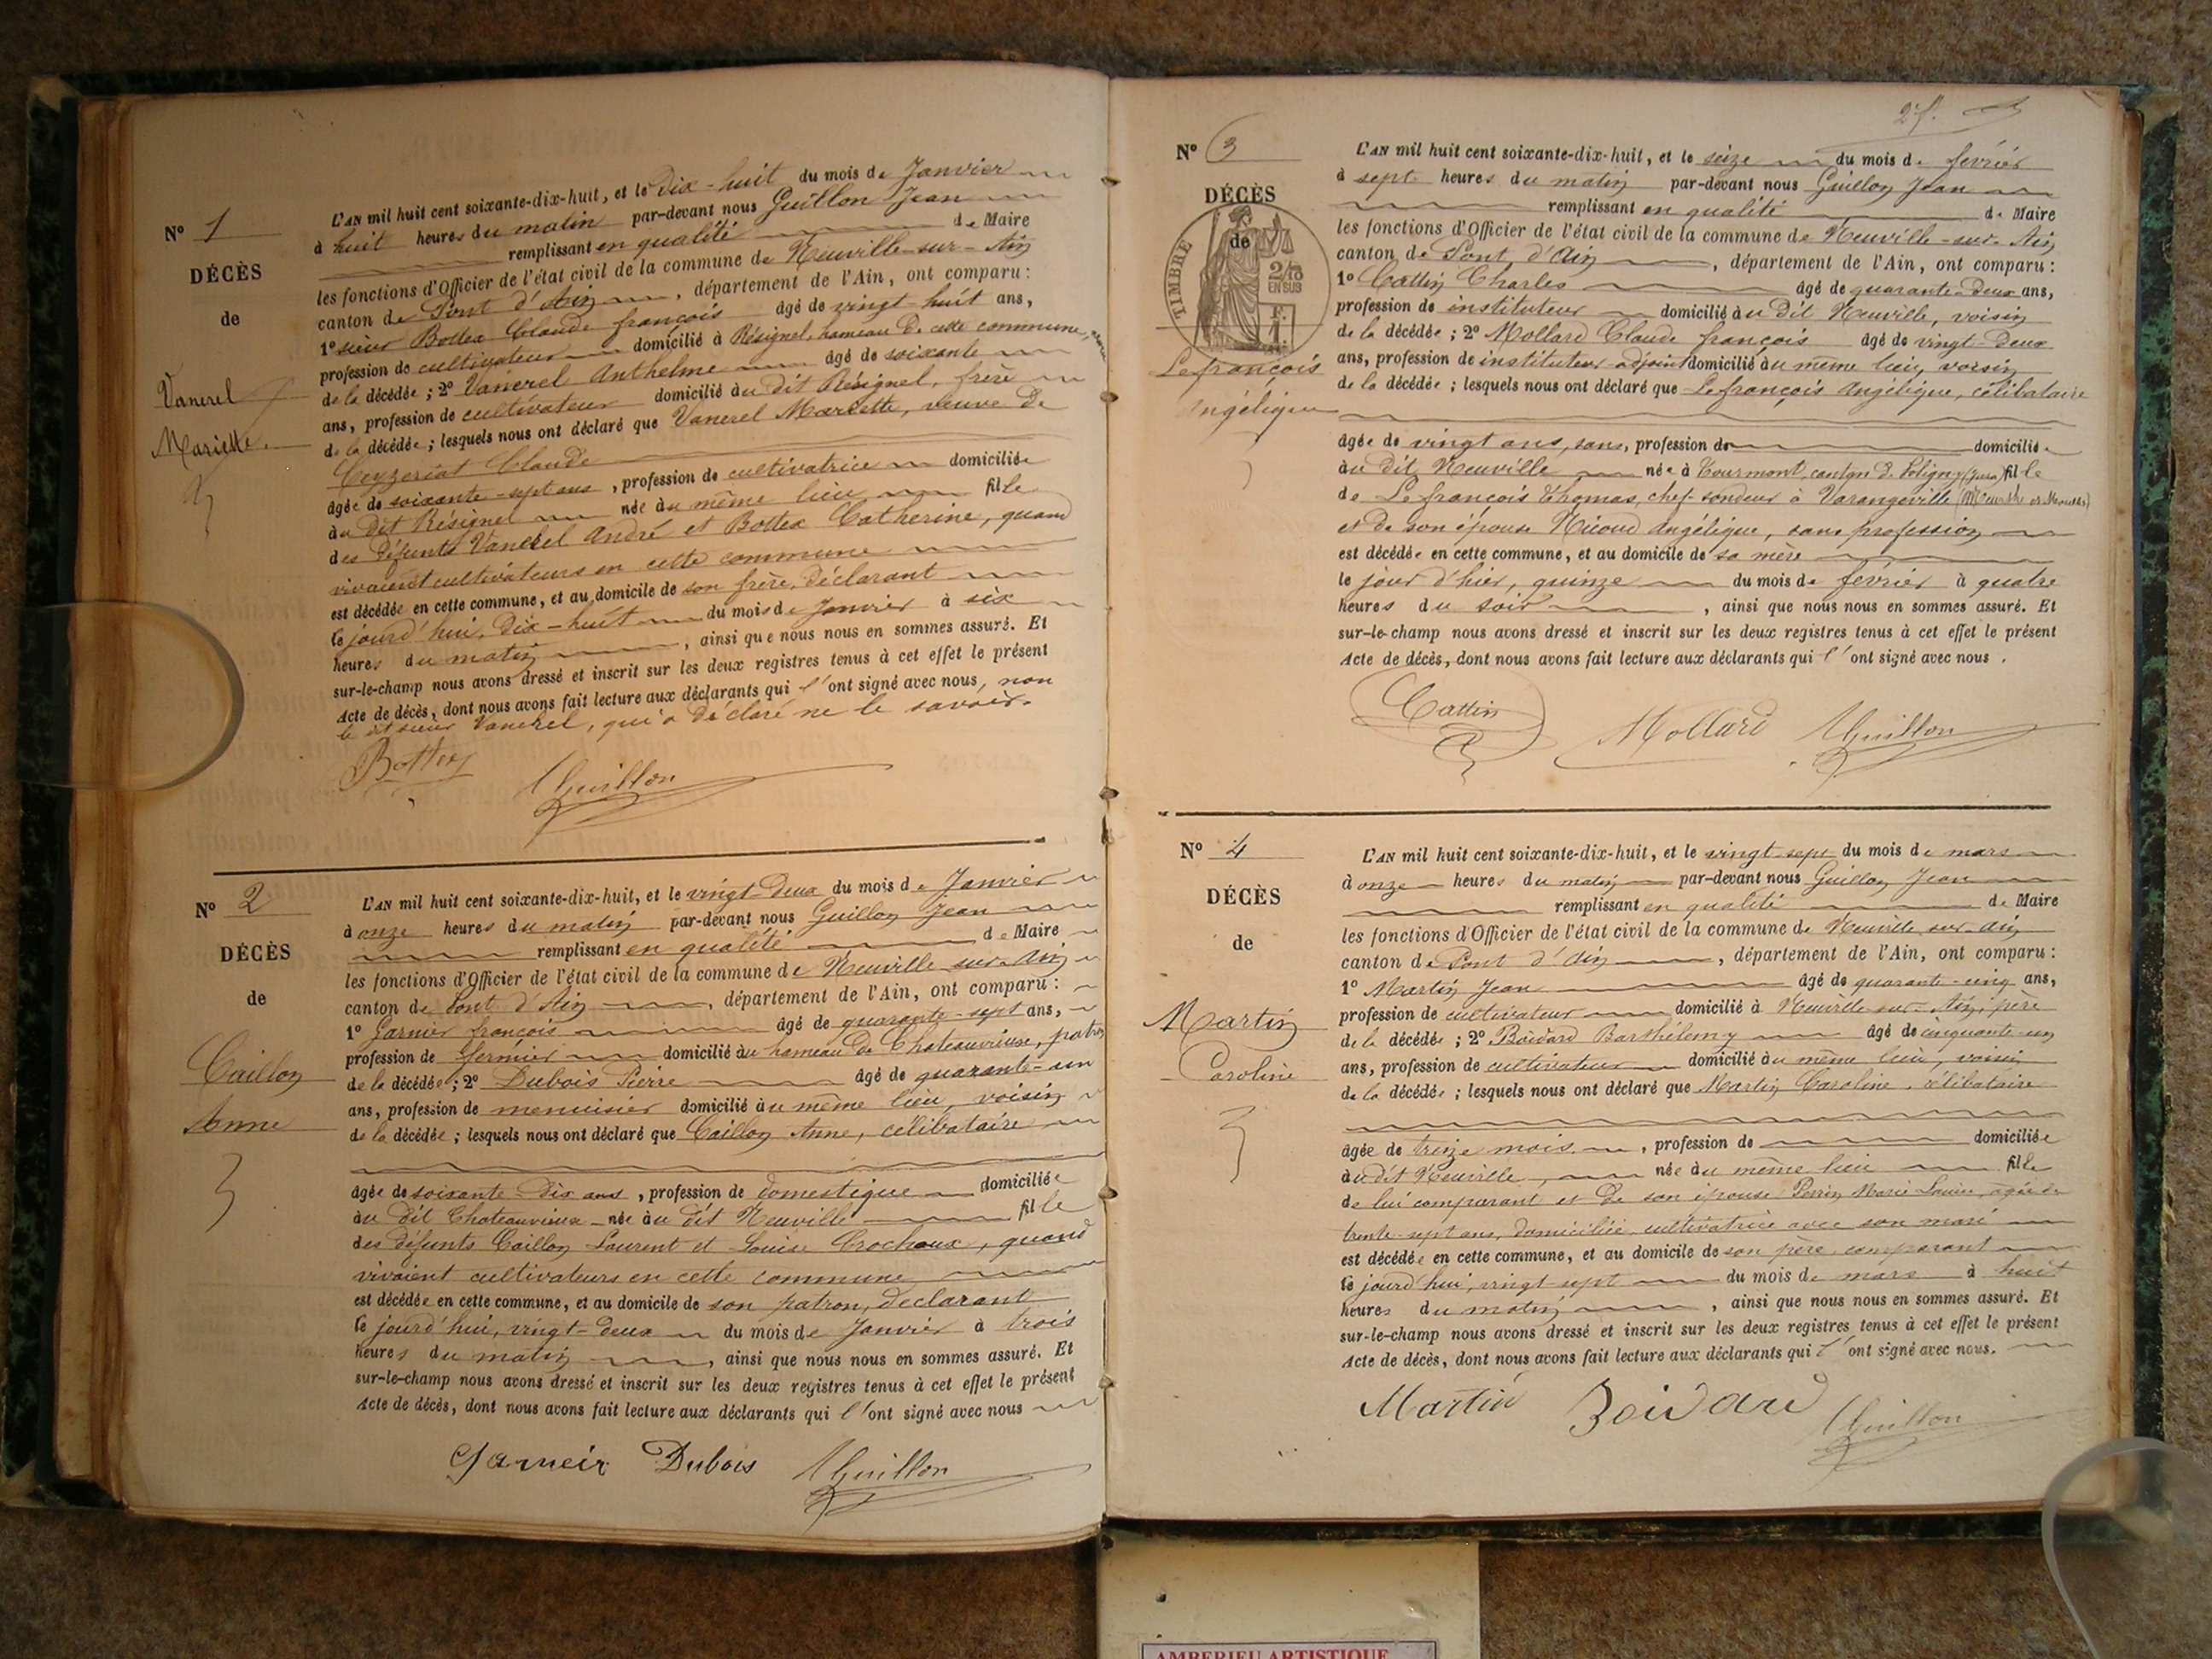 Nº 1
DÉCÈS
de
Vanerel
Mariette
L'AN mil huit cent soixante-dix-huit, et le dix-huit du mois de Janvier
à huit heures du matin par-devant nous Guillon Jean
remplissant en qualité de Maire
les fonctions d'Officier de l'état civil de la commune de Neuville-sur-Ain
canton de Pont d'Ain, département de l'Ain, ont comparu :
1º sieur Bottex Claude françois âgé de vingt huit ans,
profession de cultivateur domicilié à Résignel, hameau de cette commune,
de la décédée ; 2º Vanerel Anthelme âgé de soixante
ans, profession de cultivateur domicilié au dit Résignel, frère
de la décédée ; lesquels nous ont déclaré que Vanerel Mariette, veuve de
Ceyzeriat Claude
âgée de soixante-sept ans, profession de cultivatrice domiciliée
au dit Résignel née au même lieu fille
des défunts Vanerel André et Bottex Catherine, quand
vivaient cultivateurs en cette commune
est décédée en cette commune, et au domicile de son frère, déclarant
le jourd'hui, dix-huit du mois de Janvier à six
heures du matin, ainsi que nous nous en sommes assuré. Et
sur-le-champ nous avons dressé et inscrit sur les deux registres tenus à cet effet le présent
Acte de décès, dont nous avons fait lecture aux déclarants qui l'ont signé avec nous, non
le dit sieur Vanerel, qui a déclaré ne le savoir.
Bottex Guillon
Nº 2
DÉCÈS
de
Caillon
Anne
L'AN mil huit cent soixante-dix-huit, et le vingt-deux du mois de Janvier
à onze heures du matin par-devant nous Guillon Jean
remplissant en qualité de Maire
les fonctions d'Officier de l'état civil de la commune de Neuville sur-Ain
canton de Pont d'Ain, département de l'Ain, ont comparu :
1º Garnier françois âgé de quarante-sept ans,
profession de fermier domicilié au hameau de Chateauvieux, patron
de la décédée ; 2º Dubois Pierre âgé de quarante-un
ans, profession de menuisier domicilié au même lieu, voisin
de la décédée ; lesquels nous ont déclaré que Caillon Anne, célibataire
âgée de soixante-dix ans, profession de domestique domiciliée
au dit Chateauvieux née au dit Neuville fille
des défunts Caillon Laurent et Louise Crochoux, quand
vivaient cultivateurs en cette commune
est décédée en cette commune, et au domicile de son patron, déclarant
le jourd'hui, vingt-deux du mois de Janvier à trois
heures du matin, ainsi que nous nous en sommes assuré. Et
sur-le-champ nous avons dressé et inscrit sur les deux registres tenus à cet effet le présent
Acte de décès, dont nous avons fait lecture aux déclarants qui l'ont signé avec nous
Garneir Dubois Guillon
Nº 3
DÉCÈS
de
TIMBRE
2/10
EN SUS
Lefrançois
Angélique
L'AN mil huit cent soixante-dix-huit, et le seize du mois de février
à sept heures du matin par-devant nous Guillon Jean
remplissant en qualité de Maire
les fonctions d'Officier de l'état civil de la commune de Neuville-sur-Ain
canton de Pont d'Ain, département de l'Ain, ont comparu :
1º Cattin Charles âgé de quarante-deux ans,
profession de instituteur domicilié au dit Neuville, voisin
de la décédée ; 2º Mollard Claude françois âgé de vingt-deux
ans, profession de instituteur-adjoint domicilié au même lieu, voisin
de la décédée ; lesquels nous ont déclaré que Lefrançois Angélique, célibataire
âgée de vingt ans, sans, profession de domiciliée
au dit Neuville née à Tourmont, canton de Poligny (Jura) fille
de Lefrançois Thomas, chef-sondeur à Varangeville (Meurthe et Moselle)
et de son épouse Nicoud Angélique, sans profession
est décédée en cette commune, et au domicile de sa mère
le jour d'hier, quinze du mois de février à quatre
heures du soir, ainsi que nous nous en sommes assuré. Et
sur-le-champ nous avons dressé et inscrit sur les deux registres tenus à cet effet le présent
Acte de décès, dont nous avons fait lecture aux déclarants qui l'ont signé avec nous.
Cattin Mollard Guillon
Nº 4
DÉCÈS
de
Martin
Caroline
L'AN mil huit cent soixante-dix-huit, et le vingt-sept du mois de mars
à onze heures du matin par-devant nous Guillon Jean
remplissant en qualité de Maire
les fonctions d'Officier de l'état civil de la commune de Neuville sur-Ain
canton de Pont d'Ain, département de l'Ain, ont comparu :
1º Martin Jean âgé de quarante-cinq ans,
profession de cultivateur domicilié à Neuville-sur-Ain, père
de la décédée ; 2º Boidard Barthélemy âgé de cinquante-un
ans, profession de cultivateur domicilié au même lieu, voisin
de la décédée ; lesquels nous ont déclaré que Martin Caroline, célibataire
âgée de treize mois, profession de domiciliée
au dit Neuville, née au même lieu fille
de lui comparant et de son épouse Perrin Marie Louise, âgée de
trente-sept ans, domiciliée cultivatrice avec son mari
est décédée en cette commune, et au domicile de son père, comparant
le jourd'hui, vingt-sept du mois de mars à huit
heures du matin, ainsi que nous nous en sommes assuré. Et
sur-le-champ nous avons dressé et inscrit sur les deux registres tenus à cet effet le présent
Acte de décès, dont nous avons fait lecture aux déclarants qui l'ont signé avec nous.
Martin Boidard Guillon
AMBERIEU ARTISTIQUE